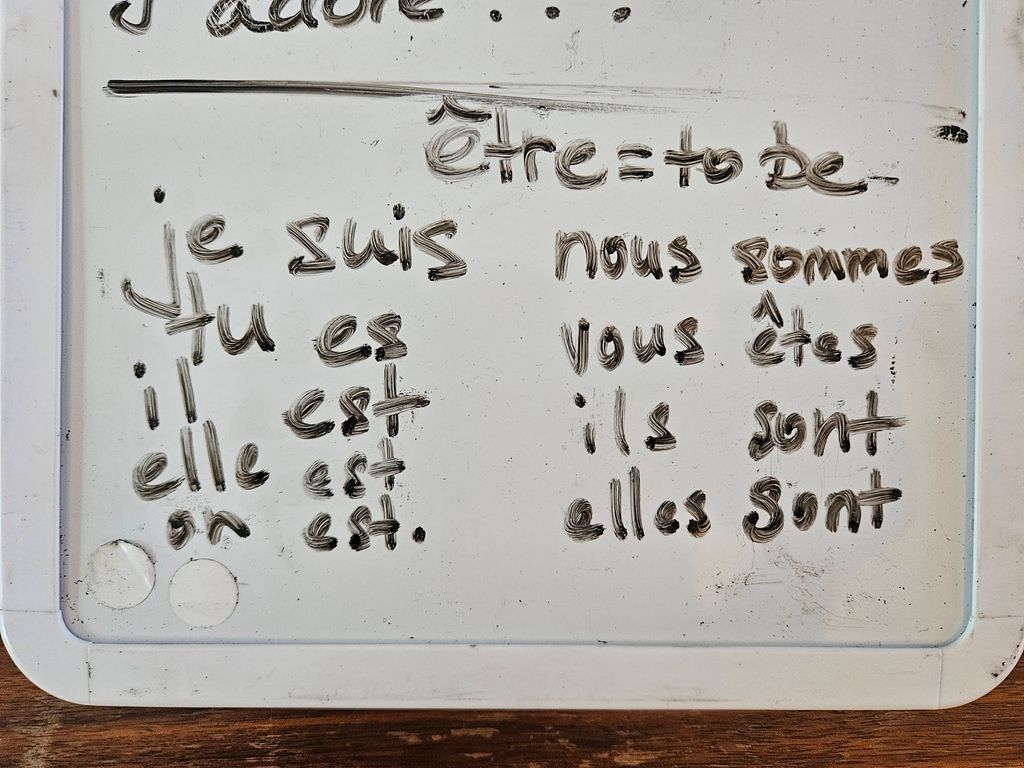 J'adore...
être = to be
je suis nous sommes
tu es vous êtes
il est ils sont
elle est elles sont
on est.